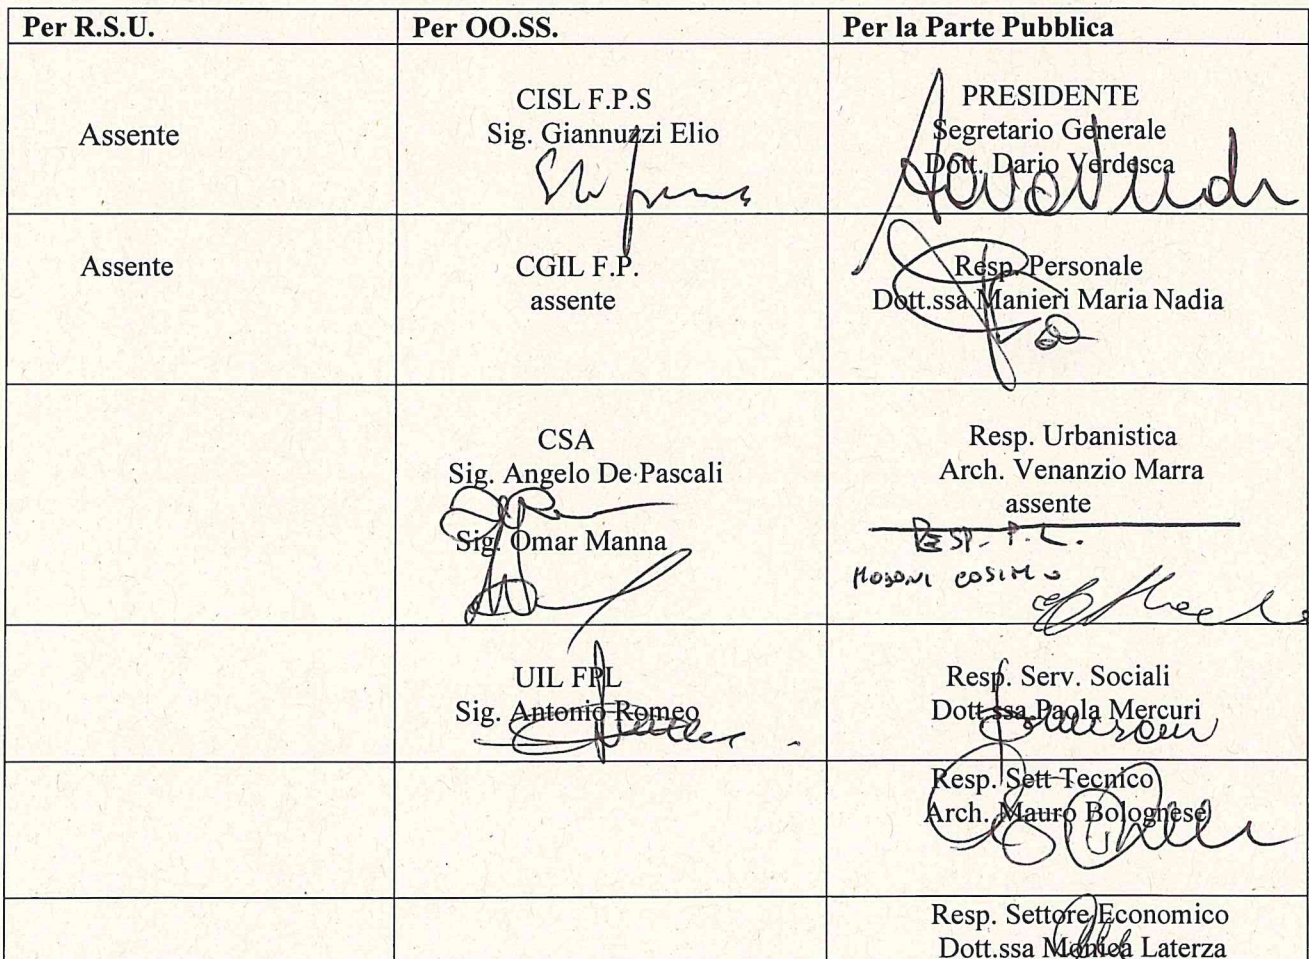 Per R.S.U.
Per OO.SS.
Per la Parte Pubblica
Assente
CISL F.P.S
Sig. Giannuzzi Elio
PRESIDENTE
Segretario Generale
Dott. Dario Verdesca
Assente
CGIL F.P.
assente
Resp. Personale
Dott.ssa Manieri Maria Nadia
CSA
Sig. Angelo De Pascali
Sig. Omar Manna
Resp. Urbanistica
Arch. Venanzio Marra
assente
RESP. P.L.
UIL FPL
Sig. Antonio Romeo
Resp. Serv. Sociali
Dott.ssa Paola Mercuri
Resp. Sett Tecnico
Arch. Mauro Bolognese
Resp. Settore Economico
Dott.ssa Monica Laterza